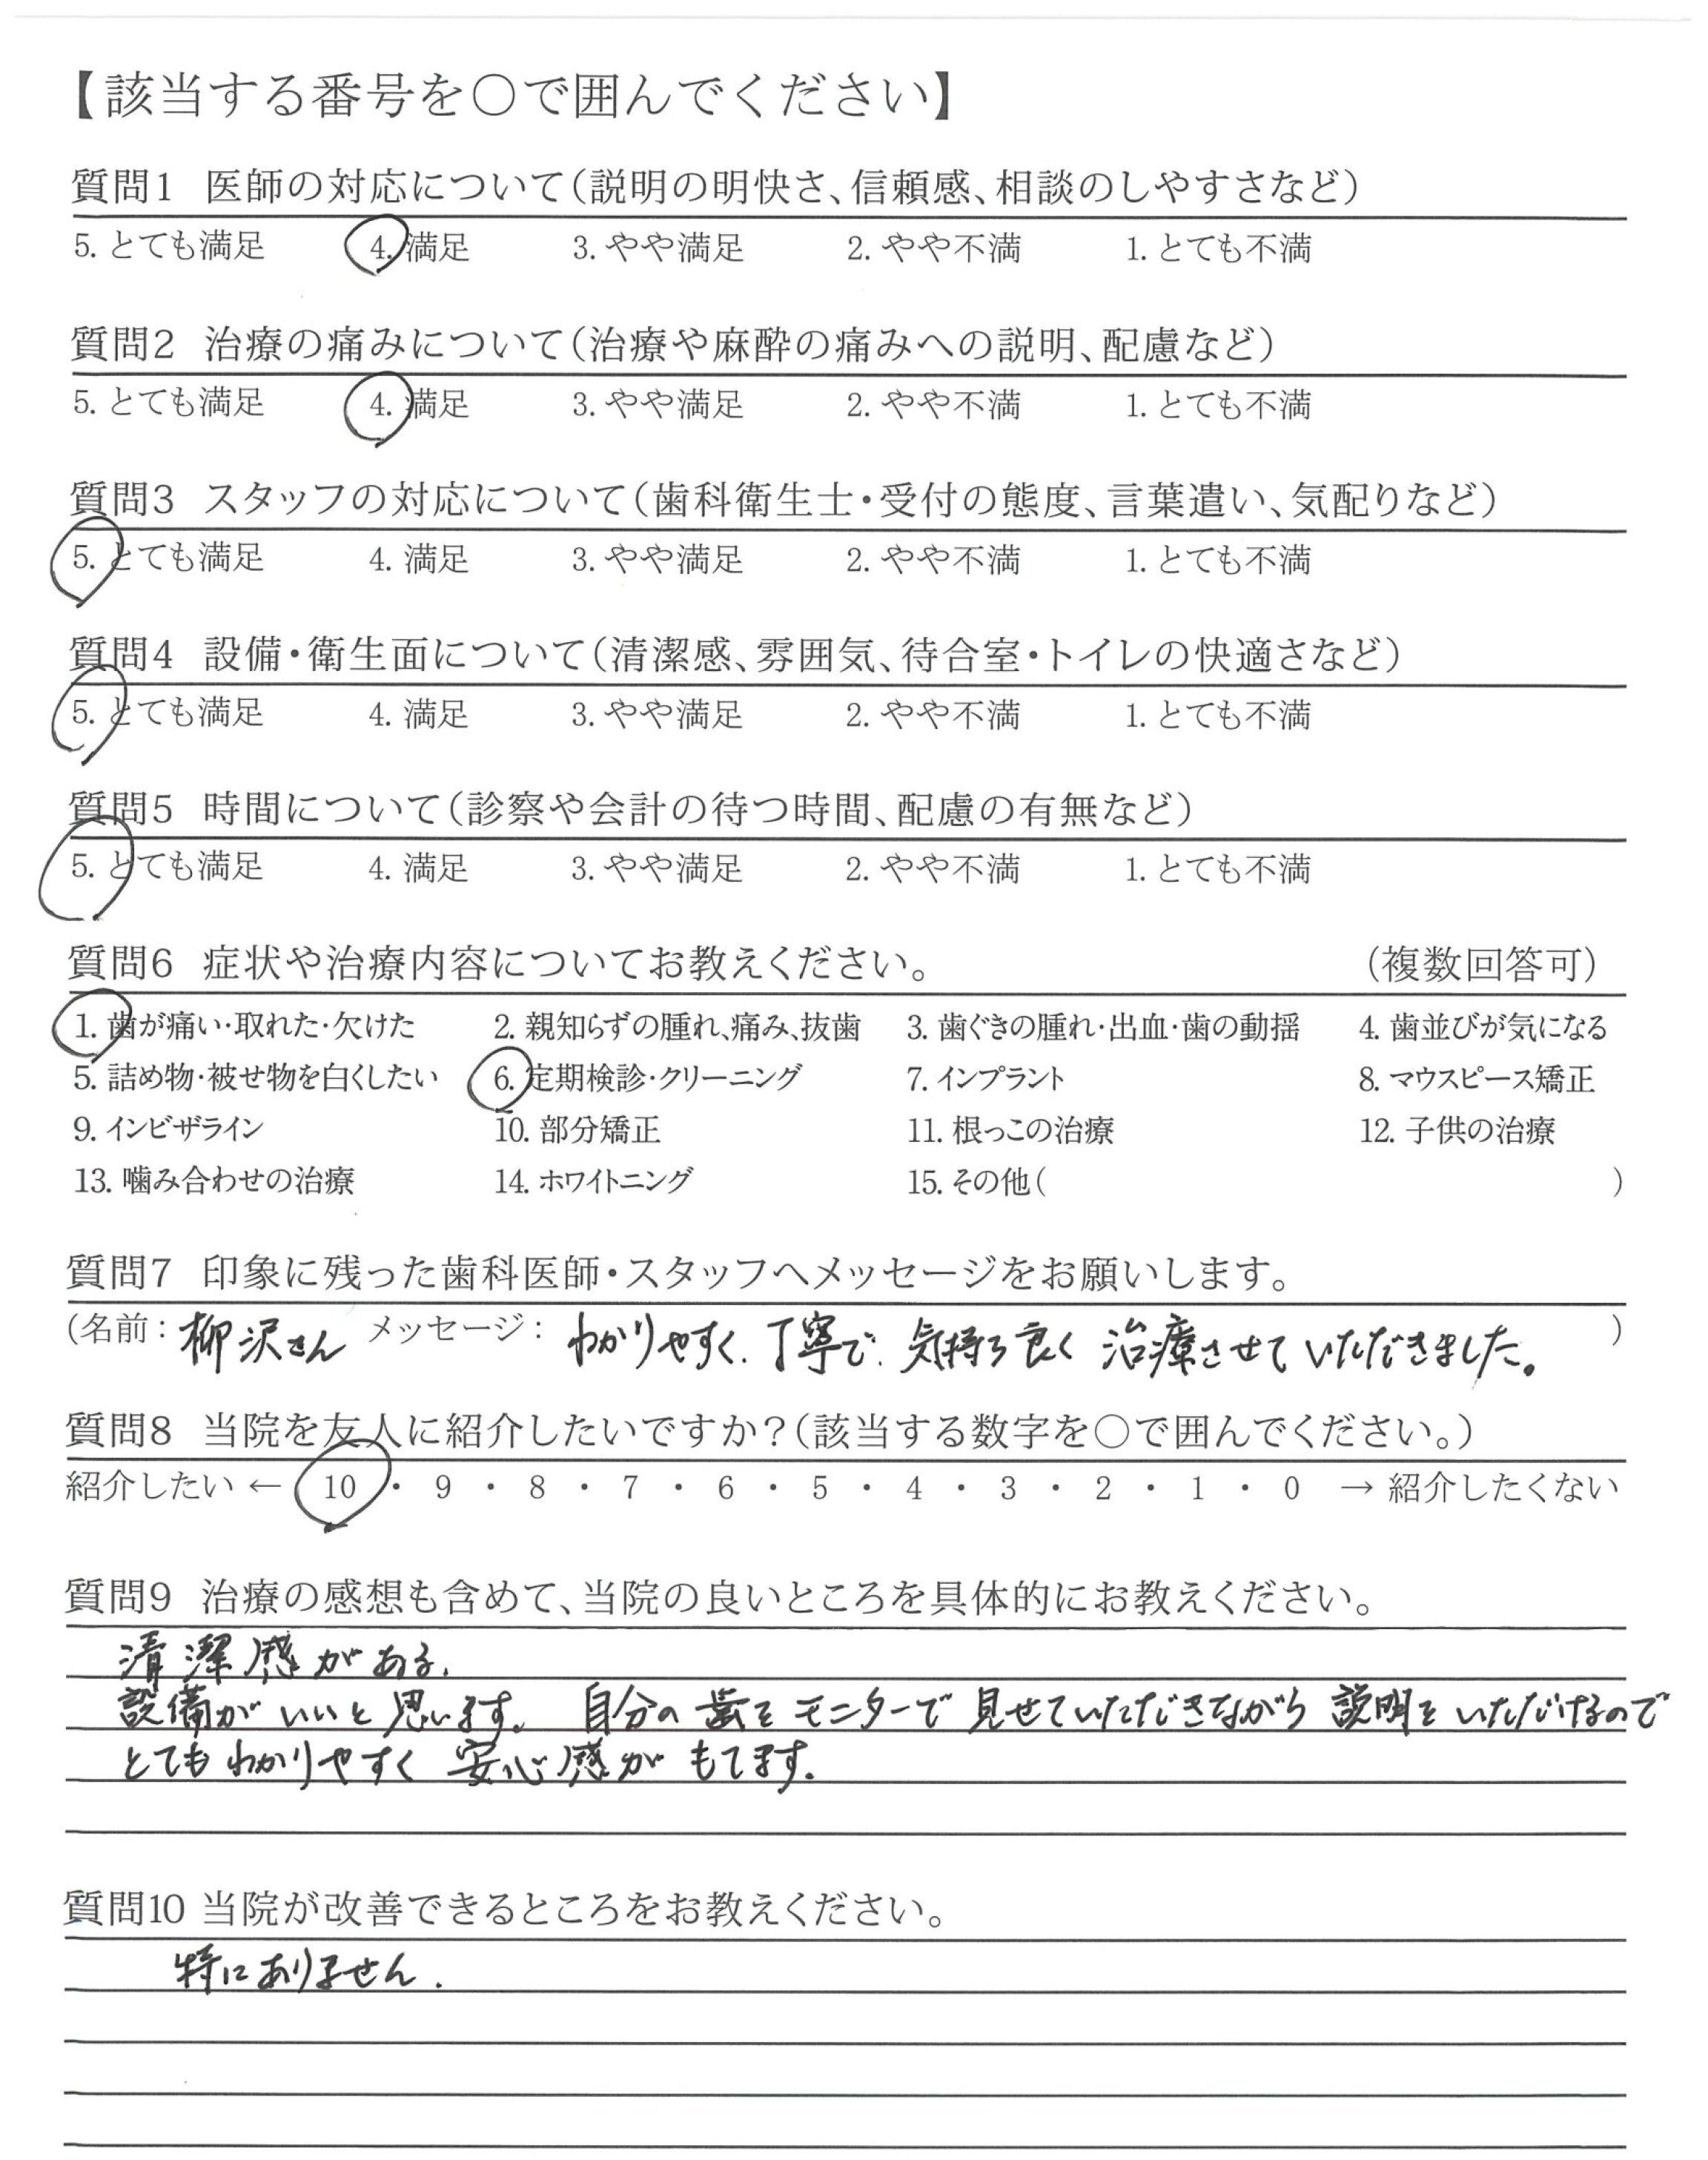 【該当する番号を○で囲んでください】
質問1 医師の対応について(説明の明快さ、信頼感、相談のしやすさなど)
5. とても満足 4. 満足 3. やや満足 2. やや不満 1. とても不満
質問2 治療の痛みについて(治療や麻酔の痛みへの説明、配慮など)
5. とても満足 4. 満足 3. やや満足 2. やや不満 1. とても不満
質問3 スタッフの対応について(歯科衛生士・受付の態度、言葉遣い、気配りなど)
5. とても満足 4. 満足 3. やや満足 2. やや不満 1. とても不満
質問4 設備・衛生面について(清潔感、雰囲気、待合室・トイレの快適さなど)
5. とても満足 4. 満足 3. やや満足 2. やや不満 1. とても不満
質問5 時間について(診察や会計の待つ時間、配慮の有無など)
5. とても満足 4. 満足 3. やや満足 2. やや不満 1. とても不満
質問6 症状や治療内容についてお教えください。 (複数回答可)
1. 歯が痛い・取れた・欠けた 2. 親知らずの腫れ、痛み、抜歯 3. 歯ぐきの腫れ・出血・歯の動揺 4. 歯並びが気になる
5. 詰め物・被せ物を白くしたい 6. 定期検診・クリーニング 7. インプラント 8. マウスピース矯正
9. インビザライン 10. 部分矯正 11. 根っこの治療 12. 子供の治療
13. 噛み合わせの治療 14. ホワイトニング 15. その他( )
質問7 印象に残った歯科医師・スタッフへメッセージをお願いします。
(名前: 柳沢さん メッセージ: わかりやすく、丁寧で、気持ち良く治療させていただきました。 )
質問8 当院を友人に紹介したいですか?(該当する数字を○で囲んでください。)
紹介したい ← 10 ・ 9 ・ 8 ・ 7 ・ 6 ・ 5 ・ 4 ・ 3 ・ 2 ・ 1 ・ 0 → 紹介したくない
質問9 治療の感想も含めて、当院の良いところを具体的にお教えください。
清潔感がある。
設備がいいと思います。 自分の歯をモニターで見せていただきながら説明をいただけるので
とてもわかりやすく安心感がもてます。
質問10 当院が改善できるところをお教えください。
特にありません。